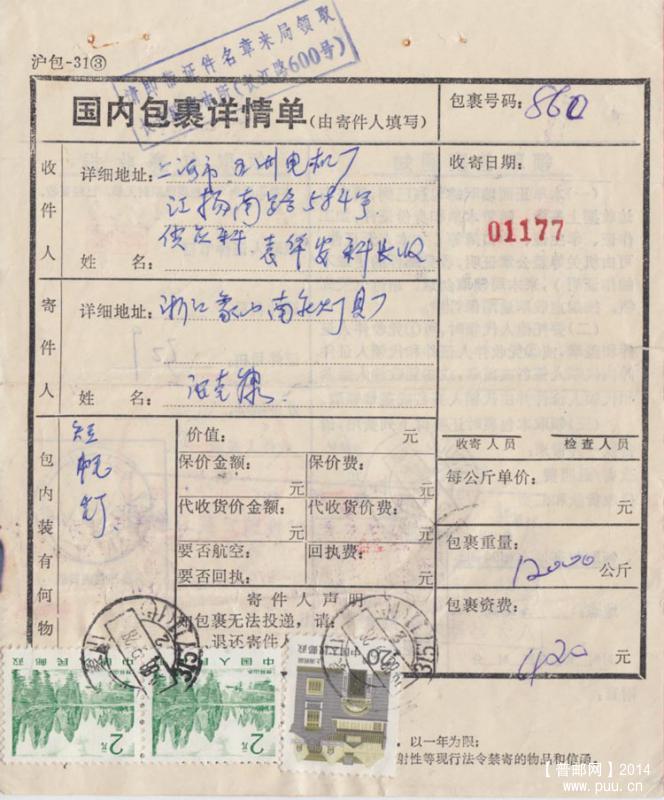 沪包-31③
请即凭证件名章来局领取
(长江路600号)
国内包裹详情单(由寄件人填写)
包裹号码:
860
收件人
详细地址:上海市五洲电机厂
江杨南路584号
供应科 袁华安科长收
姓名:
收寄日期:
01177
寄件人
详细地址:浙江象山南庄灯具厂
姓名:
包内装有何物
短帆灯
价值: 元
保价金额: 元
保价费: 元
代收货价金额: 元
代收货价费: 元
要否航空:
要否回执:
回执费: 元
收寄人员
检查人员
每公斤单价: 元
包裹重量:
12000 公斤
包裹资费:
4.20 元
寄件人声明
如包裹无法投递,请:
退还寄件人
以一年为限;
射性等现行法令禁寄的物品和信函。
中国人民邮政
2元
中国人民邮政
2元
中国人民邮政
20
【普邮网】2014
www.puu.cn